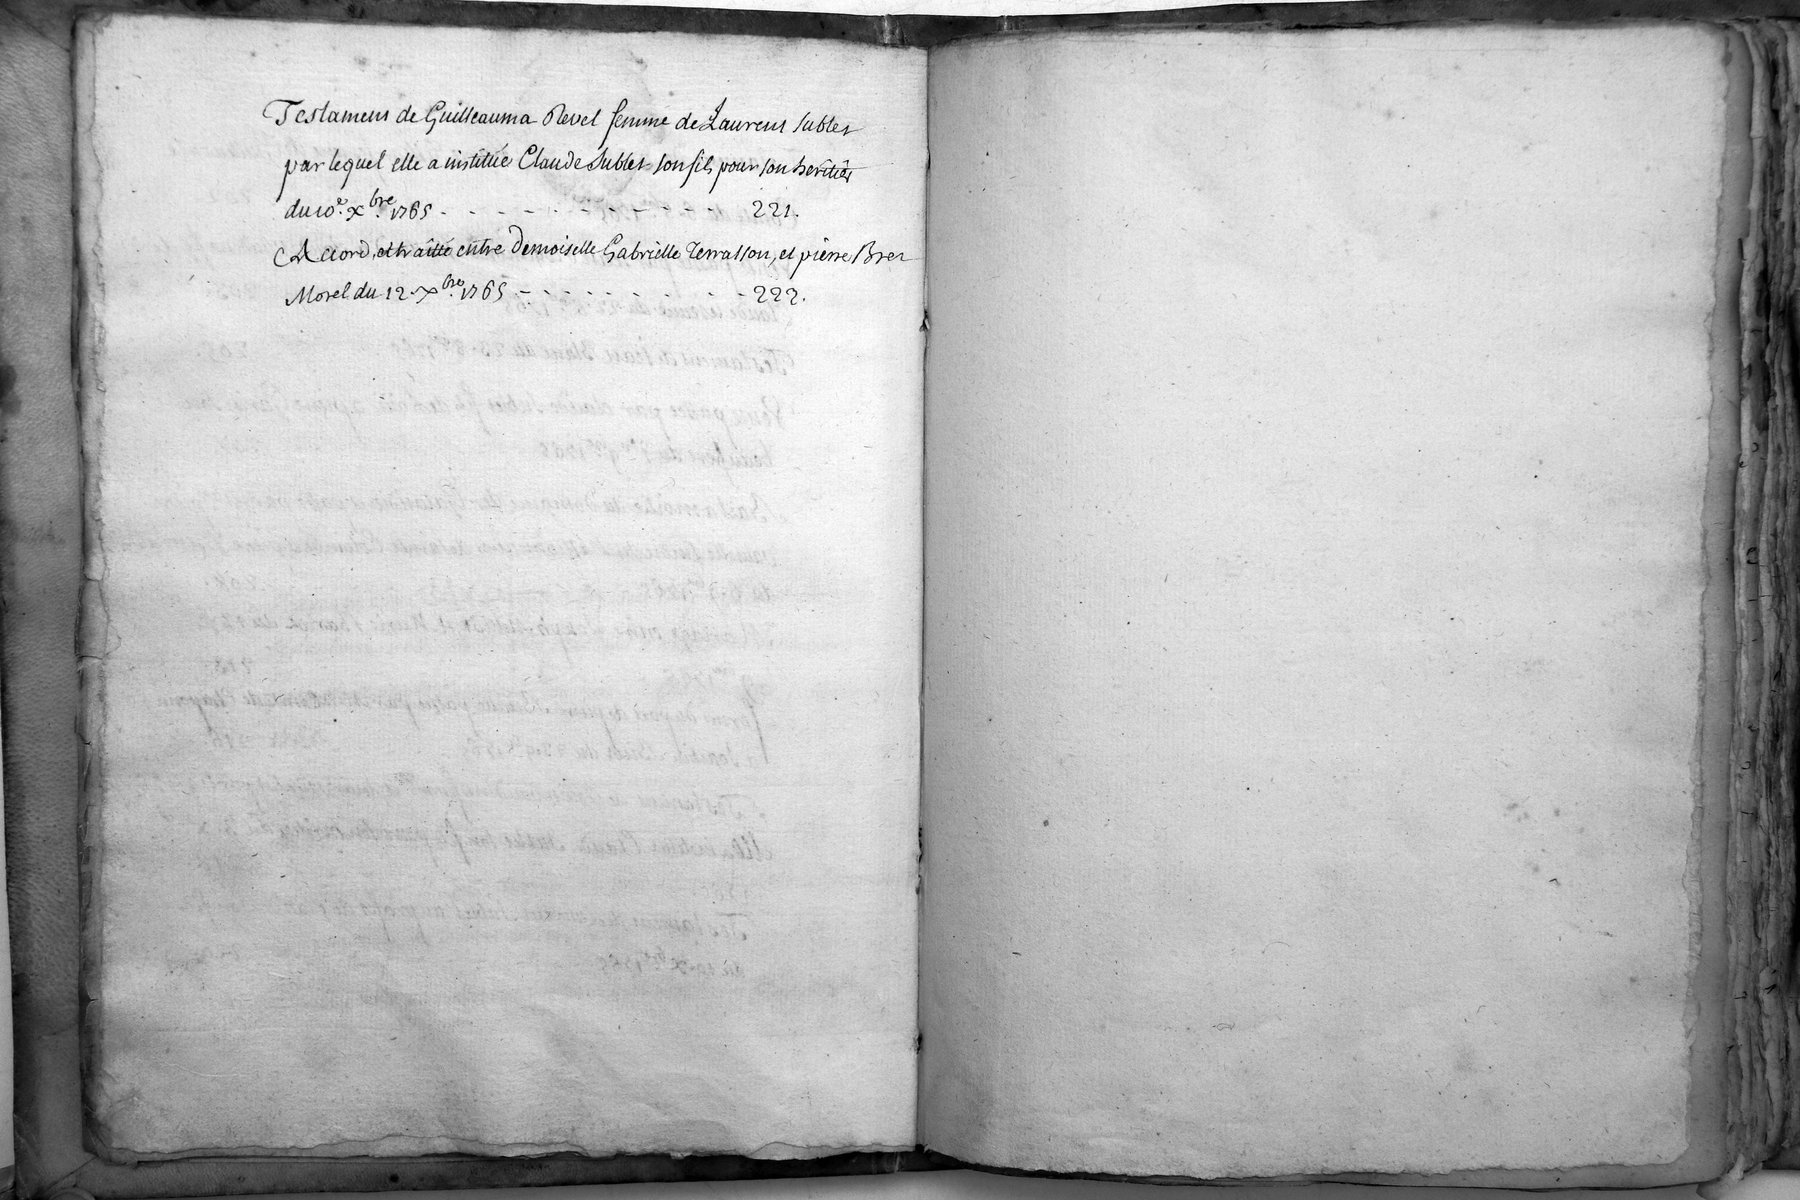 Testament de Guilleauma Revel femme de Laurent Sublet
par lequel elle a institué Claude Sublet son fils pour son heritier
du 10e. Xbre. 1765 - - - - - - - - - - 221.
Accord, et traitté entre Demoiselle Gabrielle Terrasson, et pierre Bret
Morel du 12. Xbre. 1765 - - - - - - - - - 222.